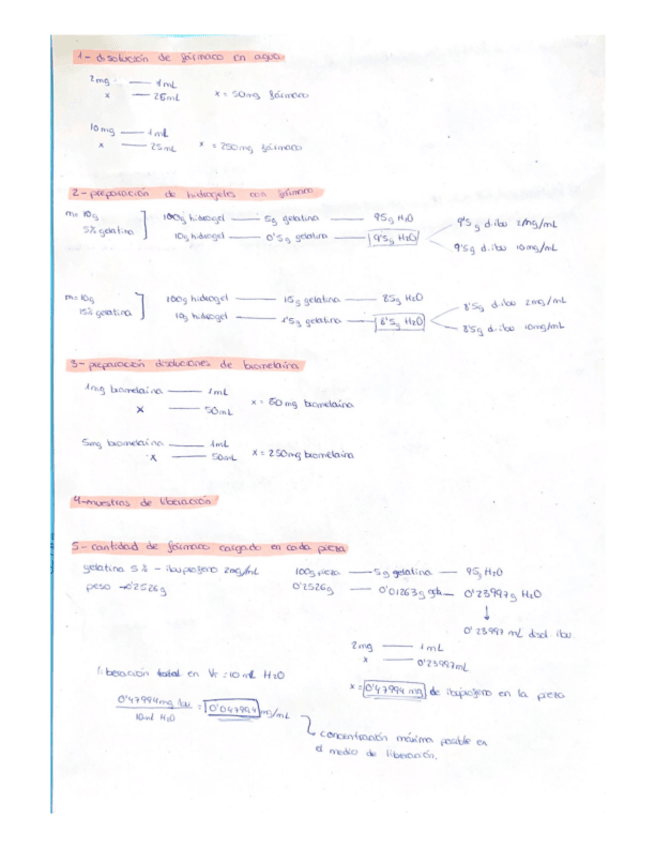 1- disolución de fármaco en agua
2mg — 1mL
x — 25mL x = 50mg fármaco
10mg — 1mL
x — 25mL x = 250mg fármaco
2- preparación de hidrogeles con fármaco
m= 10g 100g hidrogel — 5g gelatina — 95g H2O 9'5g d.ibu 2mg/mL
5% gelatina 10g hidrogel — 0'5g gelatina — 9'5g H2O 9'5g d.ibu 10mg/mL
m= 10g 100g hidrogel — 15g gelatina — 85g H2O 8'5g d.ibu 2mg/mL
15% gelatina 10g hidrogel — 1'5g gelatina — 8'5g H2O 8'5g d.ibu 10mg/mL
3- preparación disoluciones de bromelaína
1mg bromelaína — 1mL
x — 50mL x = 50mg bromelaína
5mg bromelaína — 1mL
x — 50mL x = 250mg bromelaína
4- muestras de liberación
5- cantidad de fármaco cargado en cada pieza
gelatina 5% - ibuprofeno 2mg/mL 100g pieza — 5g gelatina — 95g H2O
peso → 0'2526g 0'2526g — 0'01263g gela — 0'23997g H2O
↓
0'23997 mL disol. ibu.
2mg — 1mL
x — 0'23997mL
liberación total en Vr = 10 mL H2O
x = 0'47994 mg de ibuprofeno en la pieza
0'47994mg ibu / 10ml H2O = 0'047994 mg/mL
concentración máxima posible en
el medio de liberación.